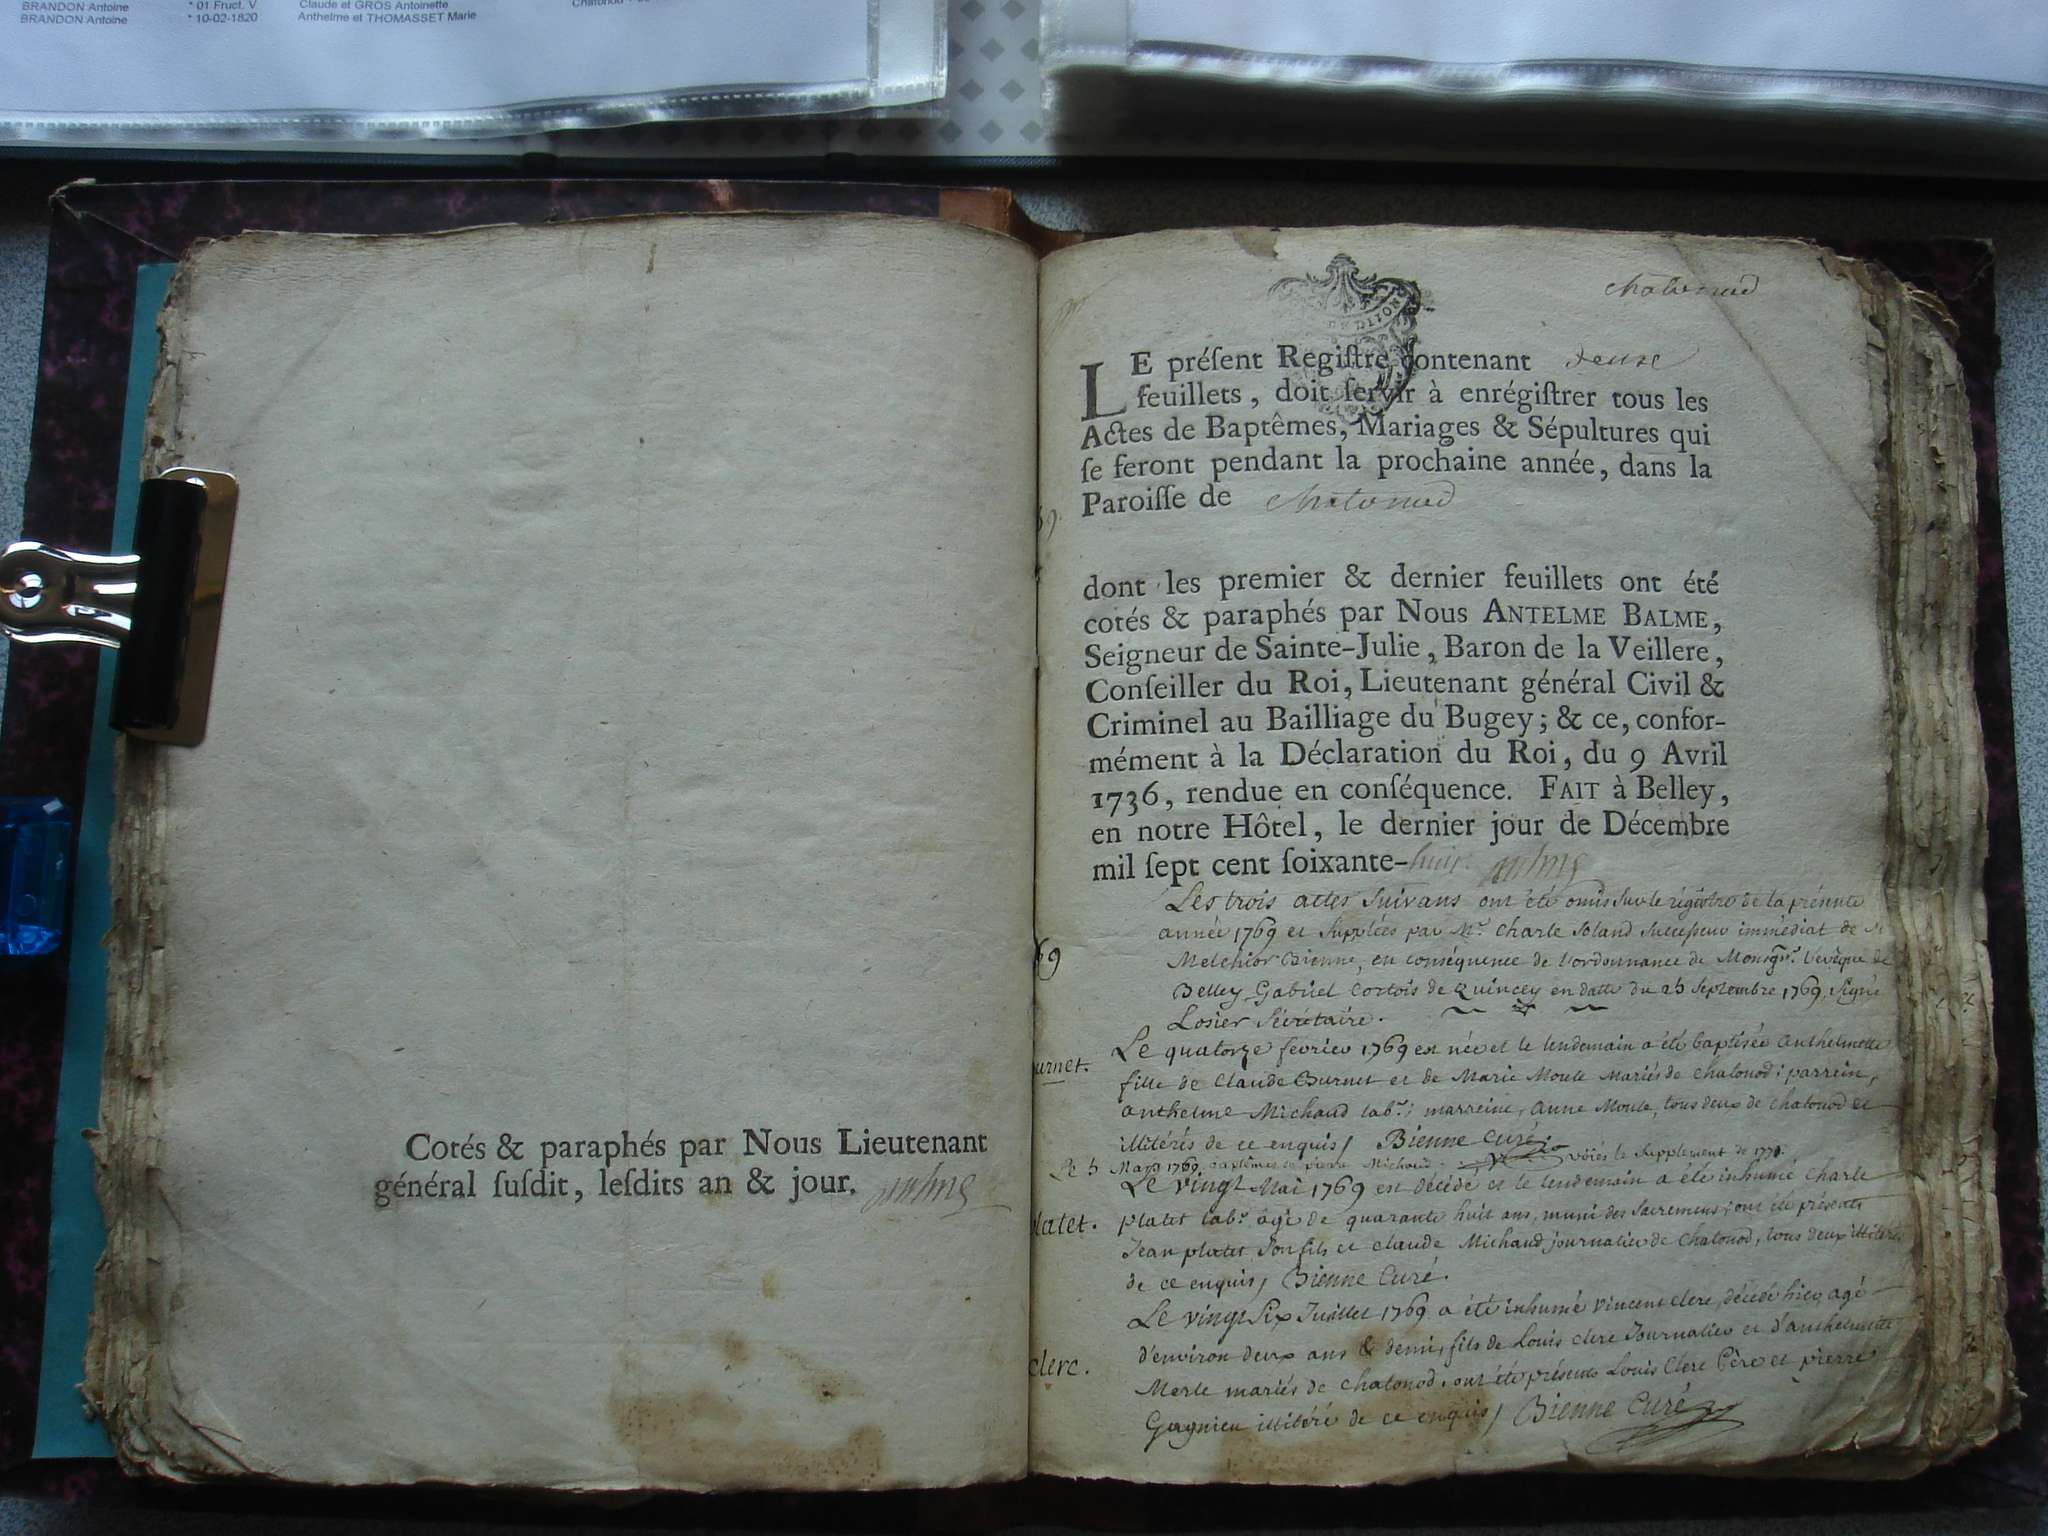 BRANDON Antoine * 01 Fruct. V Claude et GROS Antoinette
BRANDON Antoine * 10-02-1820 Anthelme et THOMASSET Marie
Cotés & paraphés par Nous Lieutenant
général ſuſdit, leſdits an & jour.
chatonod
DE DIJON
LE préſent Regiſtre contenant deuxe
feuillets, doit ſervir à enrégiſtrer tous les
Actes de Baptêmes, Mariages & Sépultures qui
ſe feront pendant la prochaine année, dans la
Paroiſſe de chatonod
dont les premier & dernier feuillets ont été
cotés & paraphés par Nous ANTELME BALME,
Seigneur de Sainte-Julie, Baron de la Veillere,
Conſeiller du Roi, Lieutenant général Civil &
Criminel au Bailliage du Bugey; & ce, confor-
mément à la Déclaration du Roi, du 9 Avril
1736, rendue en conſéquence. FAIT à Belley,
en notre Hôtel, le dernier jour de Décembre
mil ſept cent ſoixante-huit
Les trois actes Suivans ont été omis Sur le régistre de la présente
année 1769 et Supplées par Mr. Charle Soland Successeur immédiat de
Melchior Bienne, en conséquence de l'ordonnance de Monsgr. l'evêque de
Belley Gabriel Cortois de Quincey en datte du 25 Septembre 1769, Signé
Losier Sécrétaire.
urnet.
Le quatorze fevrier 1769 est née et le lendemain a été baptisée anthelmette
fille de Claude Burnet et de Marie Moule Mariés de Chatonod: parrein,
anthelme Michaud labr.; marreine, anne Moule, tous deux de chatonod et
illitérés de ce enquis, Bienne Curé.
Le 5 Mars 1769, baptême de pierre Michaud. voiés le Supplement de 1771.
Le vingt Mai 1769 est décédé et le lendemain a été inhumé Charle
platet.
platet labr. agé de quarante huit ans, muni des Sacremens; ont été présents
Jean platet Son fils et Claude Michaud journalier de Chatonod, tous deux illitérés
de ce enquis, Bienne Curé.
Le vingt Six Juillet 1769 a été inhumé Vincent clerc, décédé hier, agé
clerc.
d'environ deux ans & demi, fils de Louis clerc Journalier et d'anthelmette
Merle mariés de chatonod. ont été présents Louis Clerc Père et pierre
Gagnieu illitéré de ce enquis, Bienne Curé